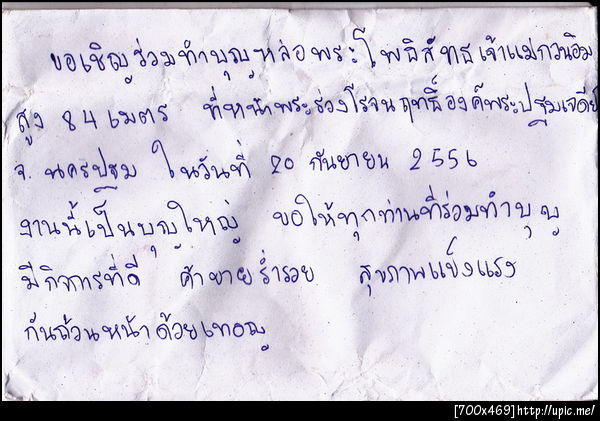 ขอเชิญร่วมทำบุญหล่อพระโพธิสัทธเจ้าแม่กวนอิม
สูง 84 เมตร ที่หน้าพระร่วงโรจนฤทธิ์องค์พระปฐมเจดีย์
จ. นครปฐม ในวันที่ 20 กันยายน 2556
งานนี้เป็นบุญใหญ่ ขอให้ทุกท่านที่ร่วมทำบุญ
มีกิจการที่ดี ค้าขายร่ำรวย สุขภาพแข็งแรง
กันถ้วนหน้าด้วยเทอญ
[700x469] http://upic.me/